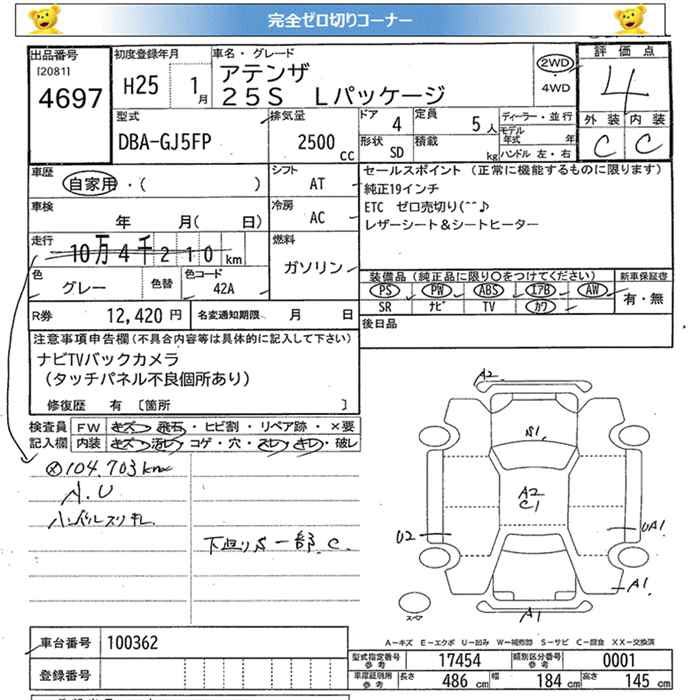 完全ゼロ切りコーナー
出品番号 初度登録年月 車名・グレード 評価点
[2081] 4697 H25 1月 アテンザ 2WD・4WD 4
25S Lパッケージ
型式 排気量 ドア 定員 ディーラー・並行 外装 内装
DBA-GJ5FP 2500cc 4 5人 モデル年式 年 C C
形状 SD 積載 kg ハンドル 左・右
車歴 シフト セールスポイント (正常に機能するものに限ります)
自家用・( ) AT 純正19インチ
車検 冷房 ETC ゼロ売切り(^^♪
年 月( 日) AC レザーシート&シートヒーター
走行 燃料
10万4千210km ガソリン
色 色替 色コード 装備品(純正品に限り〇をつけてください) 新車保証書
グレー 42A PS PW ABS エアB AW 有・無
SR ナビ TV カワ
R券 12,420円 名変通知期限 月 日 後日品
注意事項申告欄(不具合内容等は具体的に記入して下さい)
ナビTVバックカメラ
(タッチパネル不良個所あり)
修復歴 有 [箇所 ]
検査員 FW キズ・飛石・ヒビ割・リペア跡・×要
記入欄 内装 キズ・汚レ・コゲ・穴・スレ・キレ・破レ
104.703km
A.U
ハンドルスリキレ
下廻りS 一部.C.
A2
B1
A2
C1
U2
UA1
A1
A1
スペア
A-キズ E-エクボ U-凹み W-補修跡 S-サビ C-腐食 XX-交換済
車台番号 100362
型式指定番号 参考 17454 類別区分番号 参考 0001
登録番号
車庫証明用 参考 長さ 486cm 幅 184cm 高さ 145cm